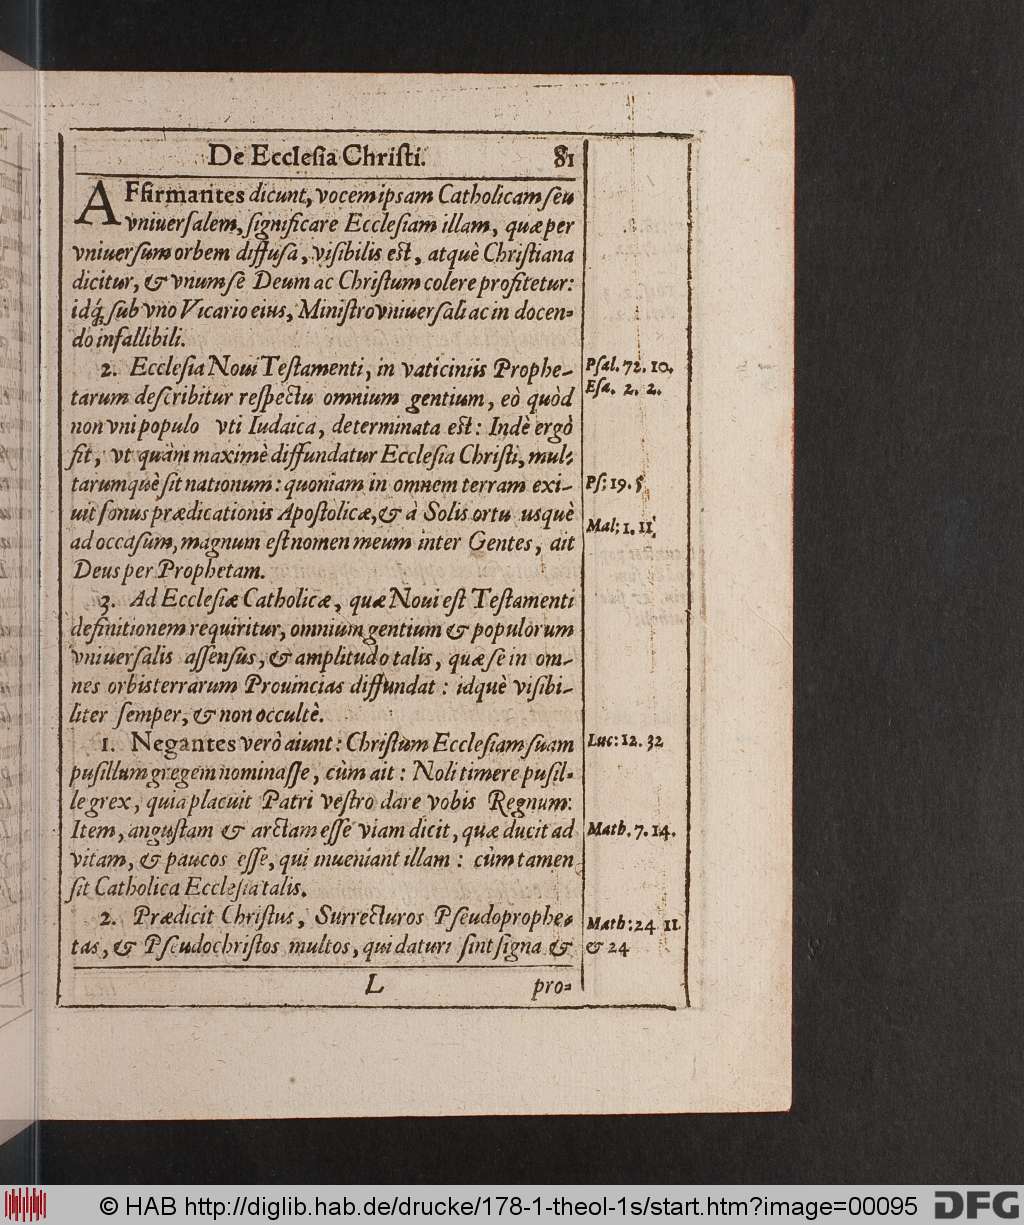 De Ecclesia Christi. 81
AFfirmantes dicunt, vocem ipsam Catholicam seu
vniuersalem, significare Ecclesiam illam, quæ per
vniuersum orbem diffusa, visibilis est, atquè Christiana
dicitur, & vnum se Deum ac Christum colere profitetur:
idq́; sub vno Vicario eius, Ministro vniuersali ac in docen-
do infallibili.
2. Ecclesia Noui Testamenti, in vaticiniis Prophe-
tarum describitur respectu omnium gentium, eò quòd
non vni populo vti Iudaica, determinata est: Indè ergò
fit, vt quàm maximè diffundatur Ecclesia Christi, mul-
tarumquè sit nationum: quoniam in omnem terram exi-
uit sonus prædicationis Apostolicæ, & à Solis ortu usquè
ad occasum, magnum est nomen meum inter Gentes, ait
Deus per Prophetam.
3. Ad Ecclesiæ Catholicæ, quæ Noui est Testamenti
definitionem requiritur, omnium gentium & populorum
vniuersalis assensus, & amplitudo talis, quæ se in om-
nes orbis terrarum Prouincias diffundat: idquè visibi-
liter semper, & non occultè.
1. Negantes verò aiunt: Christum Ecclesiam suam
pusillum gregem nominasse, cùm ait: Noli timere pusil-
le grex, quia placuit Patri vestro dare vobis Regnum:
Item, angustam & arctam esse viam dicit, quæ ducit ad
vitam, & paucos esse, qui inueniant illam: cùm tamen
sit Catholica Ecclesia talis.
2. Prædicit Christus, Surrecturos Pseudoprophe-
tas, & Pseudochristos multos, qui daturi sint signa &
L pro-
Psal. 72. 10.
Esa. 2. 2.
Ps: 19. 5
Mal: 1. 11.
Luc: 12. 32
Math. 7. 14.
Math: 24 11.
& 24
© HAB http://diglib.hab.de/drucke/178-1-theol-1s/start.htm?image=00095 DFG